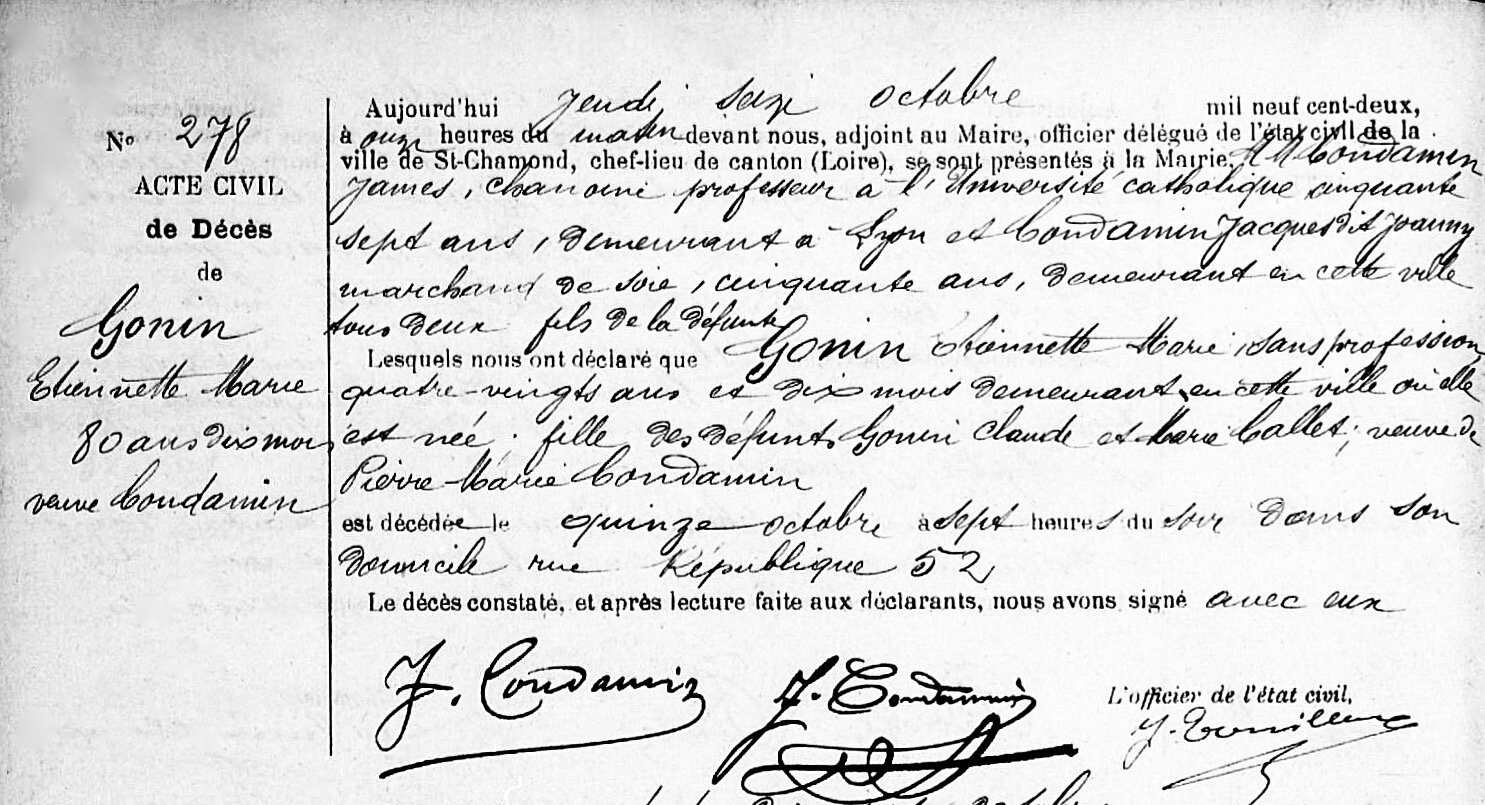 N° 278
ACTE CIVIL
de Décès
de
Gonin
Etiennette Marie
80 ans dix mois
veuve Condamin
Aujourd'hui Jeudi, seize octobre mil neuf cent-deux,
à onze heures du matin devant nous, adjoint au Maire, officier délégué de l'état civil de la
ville de St-Chamond, chef-lieu de canton (Loire), se sont présentés à la Mairie, MM Condamin
James, chanoine professeur à l'Université catholique cinquante
sept ans, demeurant à Lyon et Condamin Jacques dit Joanny
marchand de soie, cinquante ans, demeurant en cette ville
tous deux fils de la défunte
Lesquels nous ont déclaré que Gonin Etiennette Marie, sans profession,
quatre-vingts ans et dix mois demeurant en cette ville où elle
est née, fille des défunts Gonin Claude et Marie Callet, veuve de
Pierre Marie Condamin
est décédée le quinze octobre à sept heures du soir dans son
domicile rue République 52
Le décès constaté, et après lecture faite aux déclarants, nous avons signé avec eux
J. Condamin
J. Condamin
L'officier de l'état civil,